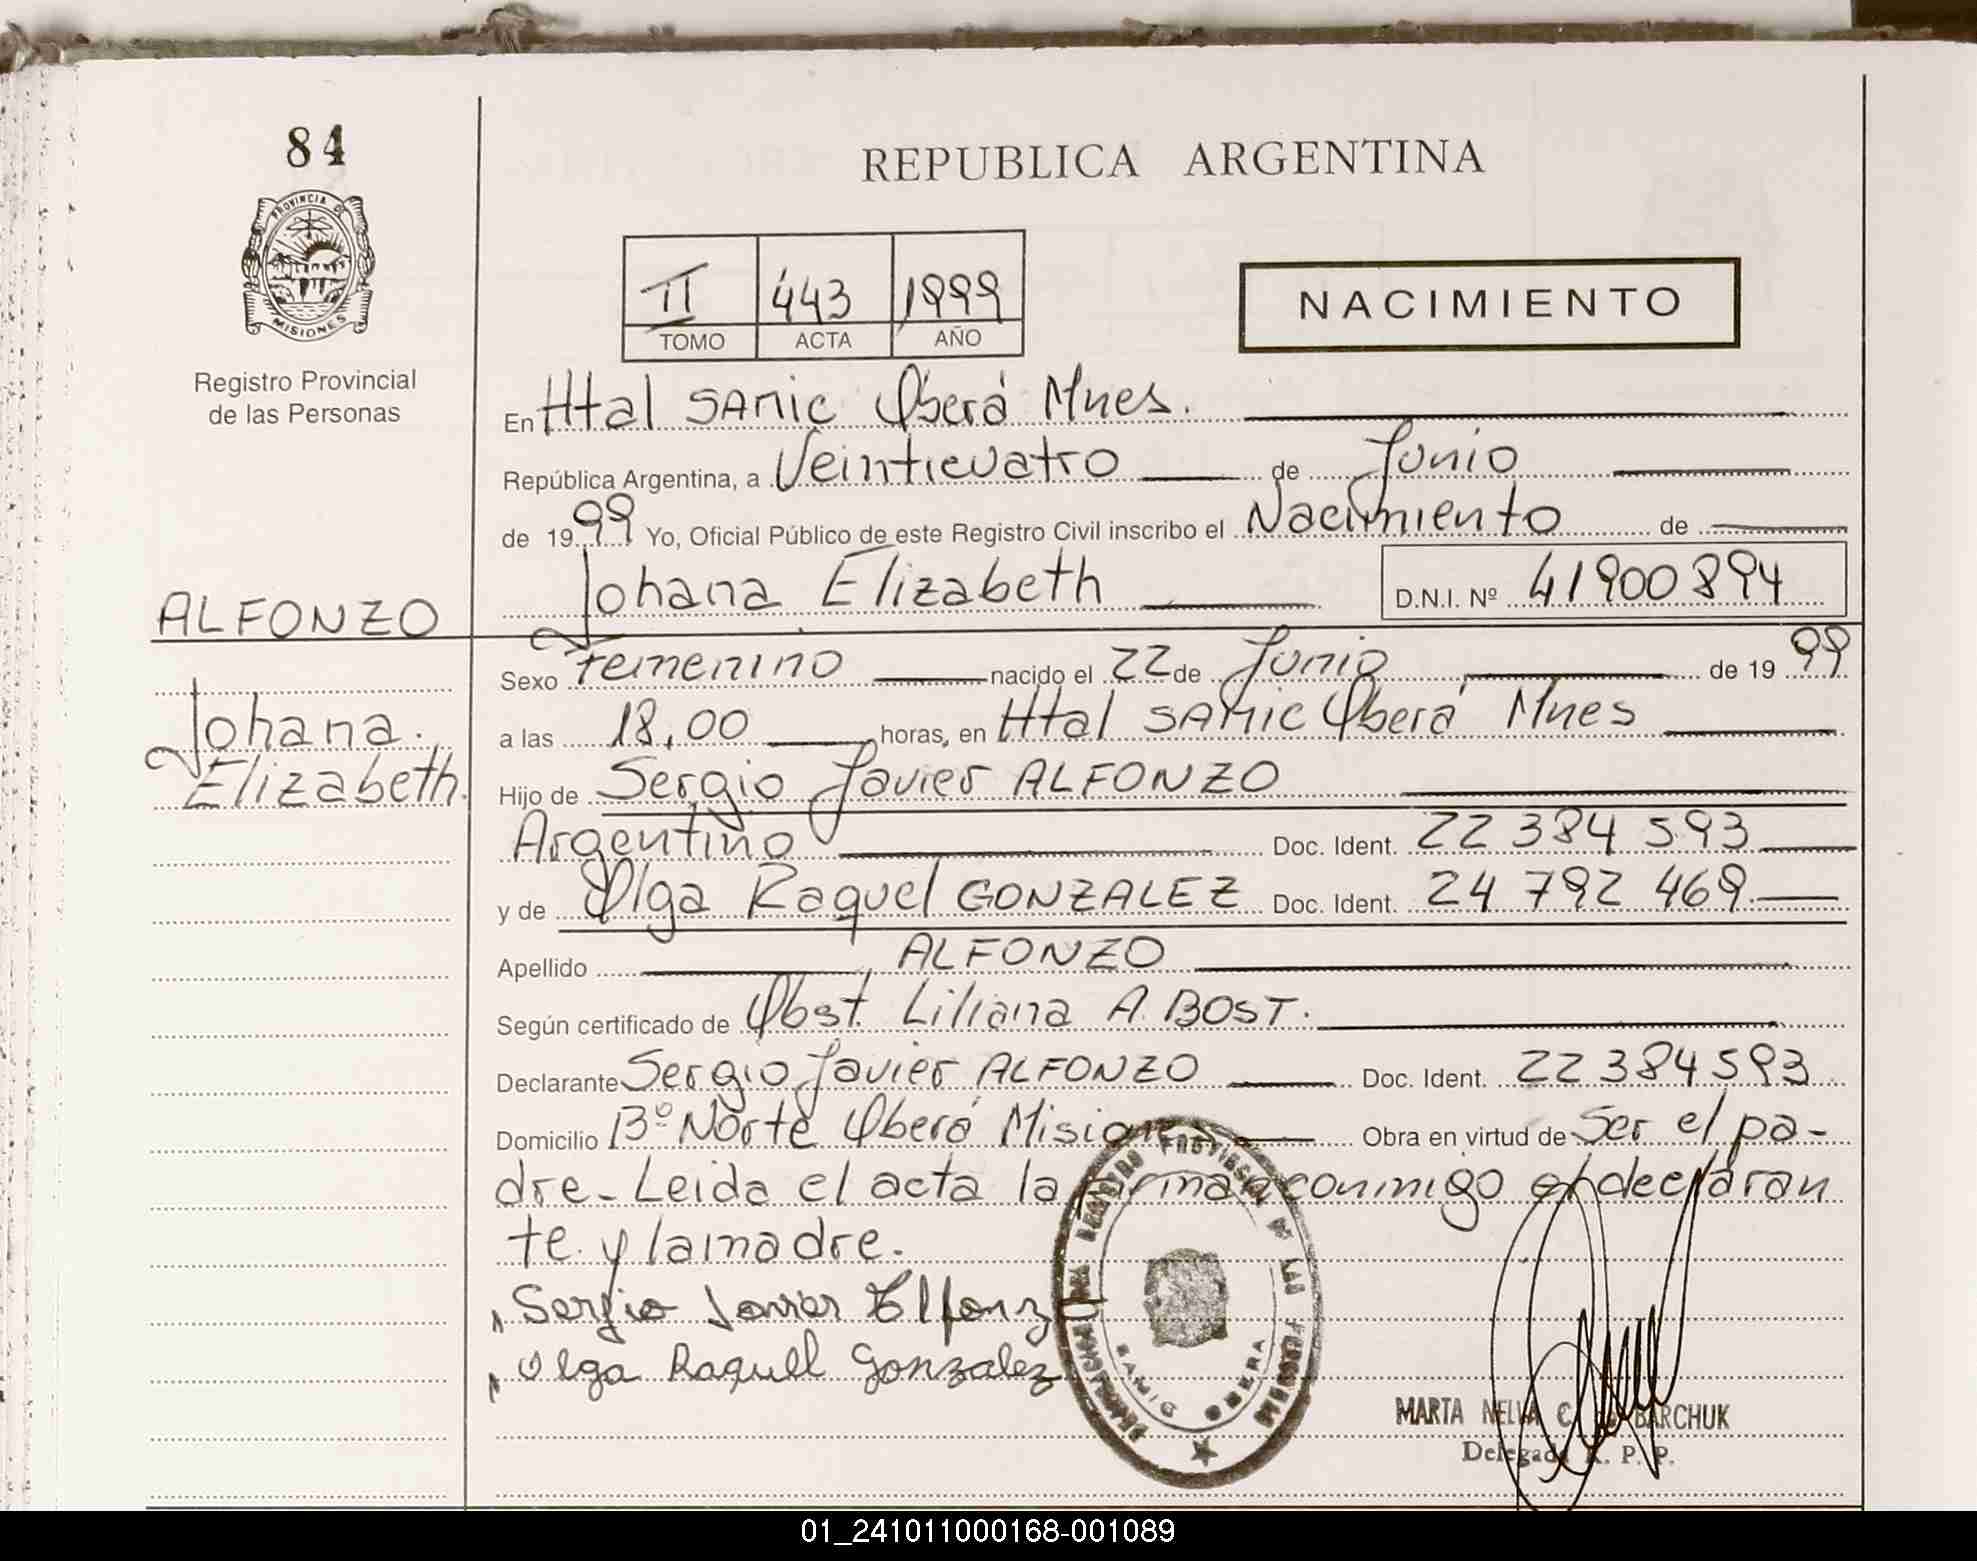 84
PROVINCIA DE
MISIONES
Registro Provincial
de las Personas
ALFONZO
Johana.
Elizabeth.
REPUBLICA ARGENTINA
II 443 1999
TOMO ACTA AÑO
NACIMIENTO
En Htal SAMIC Oberá Mnes.
República Argentina, a Veinticuatro de Junio
de 1999 Yo, Oficial Público de este Registro Civil inscribo el Nacimiento de
Johana Elizabeth D.N.I. Nº 41900894
Sexo Femenino nacido el 22 de Junio de 1999
a las 18,00 horas, en Htal SAMIC Oberá Mnes
Hijo de Sergio Javier ALFONZO
Argentino Doc. Ident. 22 384 593
y de Olga Raquel GONZALEZ Doc. Ident. 24 792 469.
Apellido ALFONZO
Según certificado de Obst. Liliana A. BOST.
Declarante Sergio Javier ALFONZO Doc. Ident. 22 384 593
Domicilio Bº Norte Oberá Misiones Obra en virtud de Ser el pa-
dre - Leida el acta la firman conmigo el declaran
te y la madre.
Sergio Javier Alfonzo
Olga Raquell Gonzalez
REGISTRO PROVINCIAL DE LAS PERSONAS
SAMIC OBERA
MARTA NELVA C. BARCHUK
Delegada R. P. P.
01_241011000168-001089